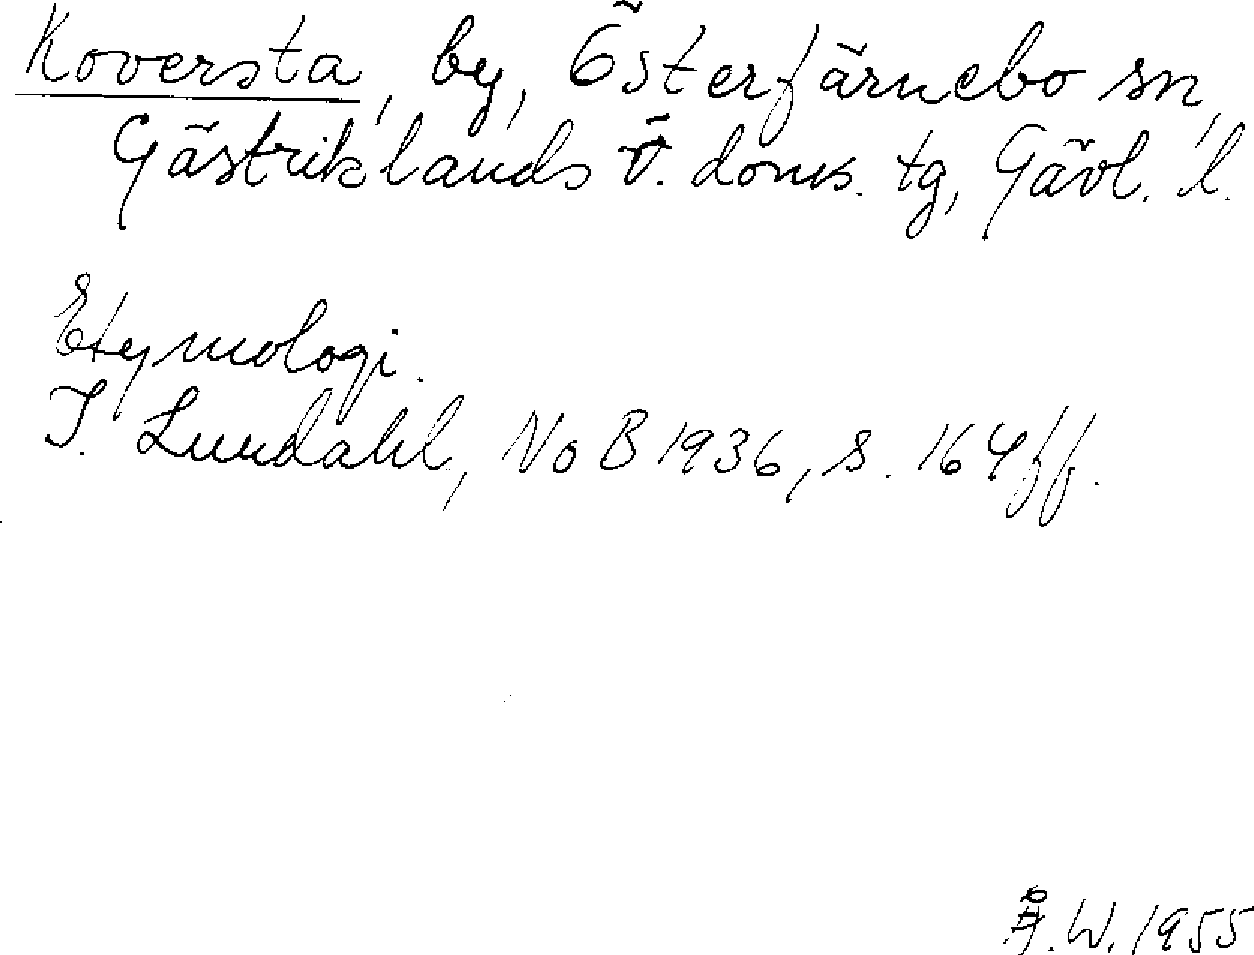 Koversta, by, Österfärnebo sn,
Gästriklands ö. doms. tg, Gävl. l.
Etymologi.
I. Lundahl, NoB 1936, s. 164 ff.
Å.W. 1955